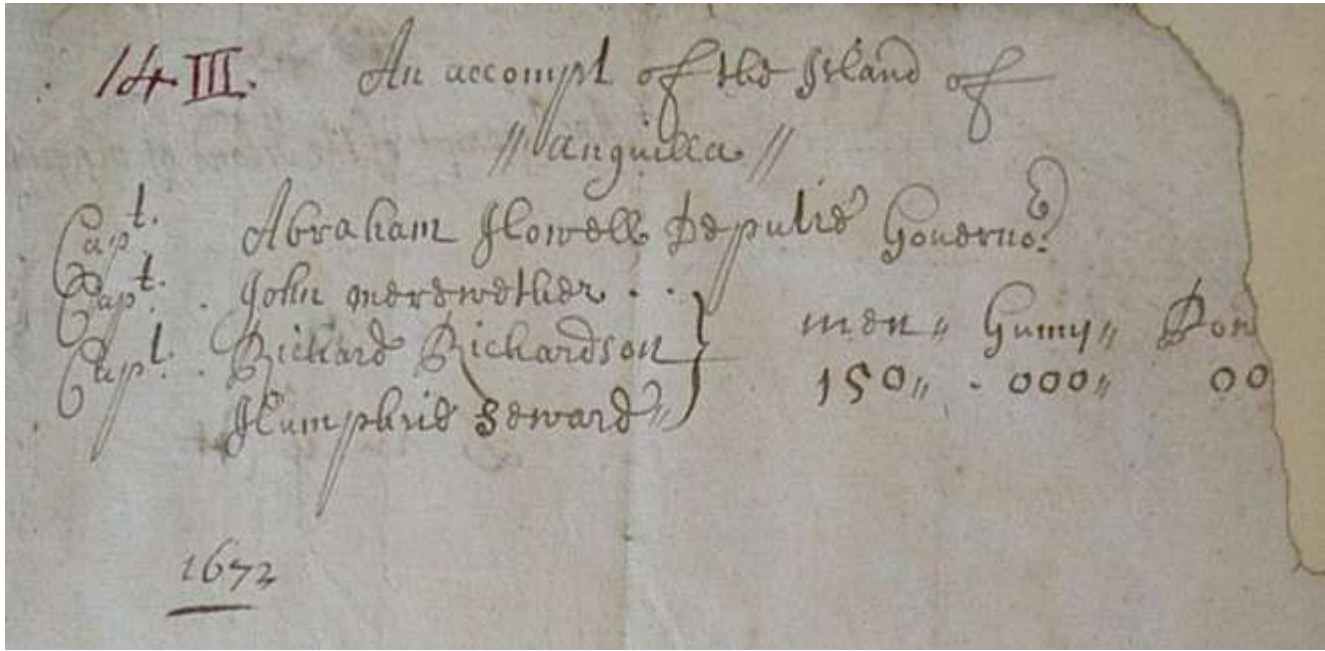 14 III. An accompt of the Island of
// Anguilla //
Capt. Abraham Howell Deputie Governor.
Capt. John merewether . .
Capt. Richard Richardson } men,, Gunns,,
Humphrie Seward,, } 150,, . 000,, 00
1672